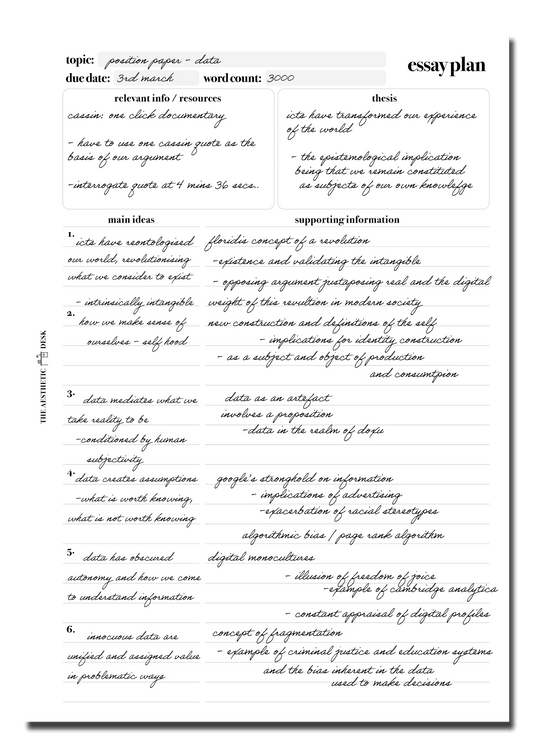 topic: position paper - data
essay plan
due date: 3rd march word count: 3000
relevant info / resources
cassin: one click documentary
- have to use one cassin quote as the
basis of our argument
-interrogate quote at 4 mins 36 secs..
thesis
icts have transformed our experience
of the world
- the epistemological implication
being that we remain constituted
as subjects of our own knowlefge
main ideas
supporting information
1. icts have reontologised
our world, revolutionising
what we consider to exist
- intrinsically intangible
floridis concept of a revolution
-existence and validating the intangible
- opposing argument juxtaposing real and the digital
weight of this revultion in modern society
2. how we make sense of
ourselves - self hood
new construction and definitions of the self
- implications for identity construction
- as a subject and object of production
and consumtpion
3. data mediates what we
take reality to be
-conditioned by human
subjectivity
data as an artefact
involves a proposition
-data in the realm of doxu
4. data creates assumptions
-what is worth knowing,
what is not worth knowing
google's stronghold on information
- implications of advertising
-exacerbation of racial stereotypes
algorithmic bias / page rank algorithm
5. data has obscured
autonomy and how we come
to understand information
digital monocultures
- illusion of freedom of joice
-example of cambridge analytica
- constant appraisal of digital profiles
6. innocuous data are
unified and assigned value
in problematic ways
concept of fragmentation
- example of criminal justice and education systems
and the bias inherent in the data
used to make decisions
THE AESTHETIC DESK